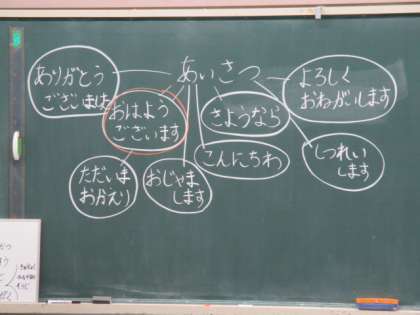 あいさつ
ありがとう
ございました
おはよう
ございます
さようなら
よろしく
おねがいします
こんにちわ
しつれい
します
ただいま
おかえり
おじゃま
します